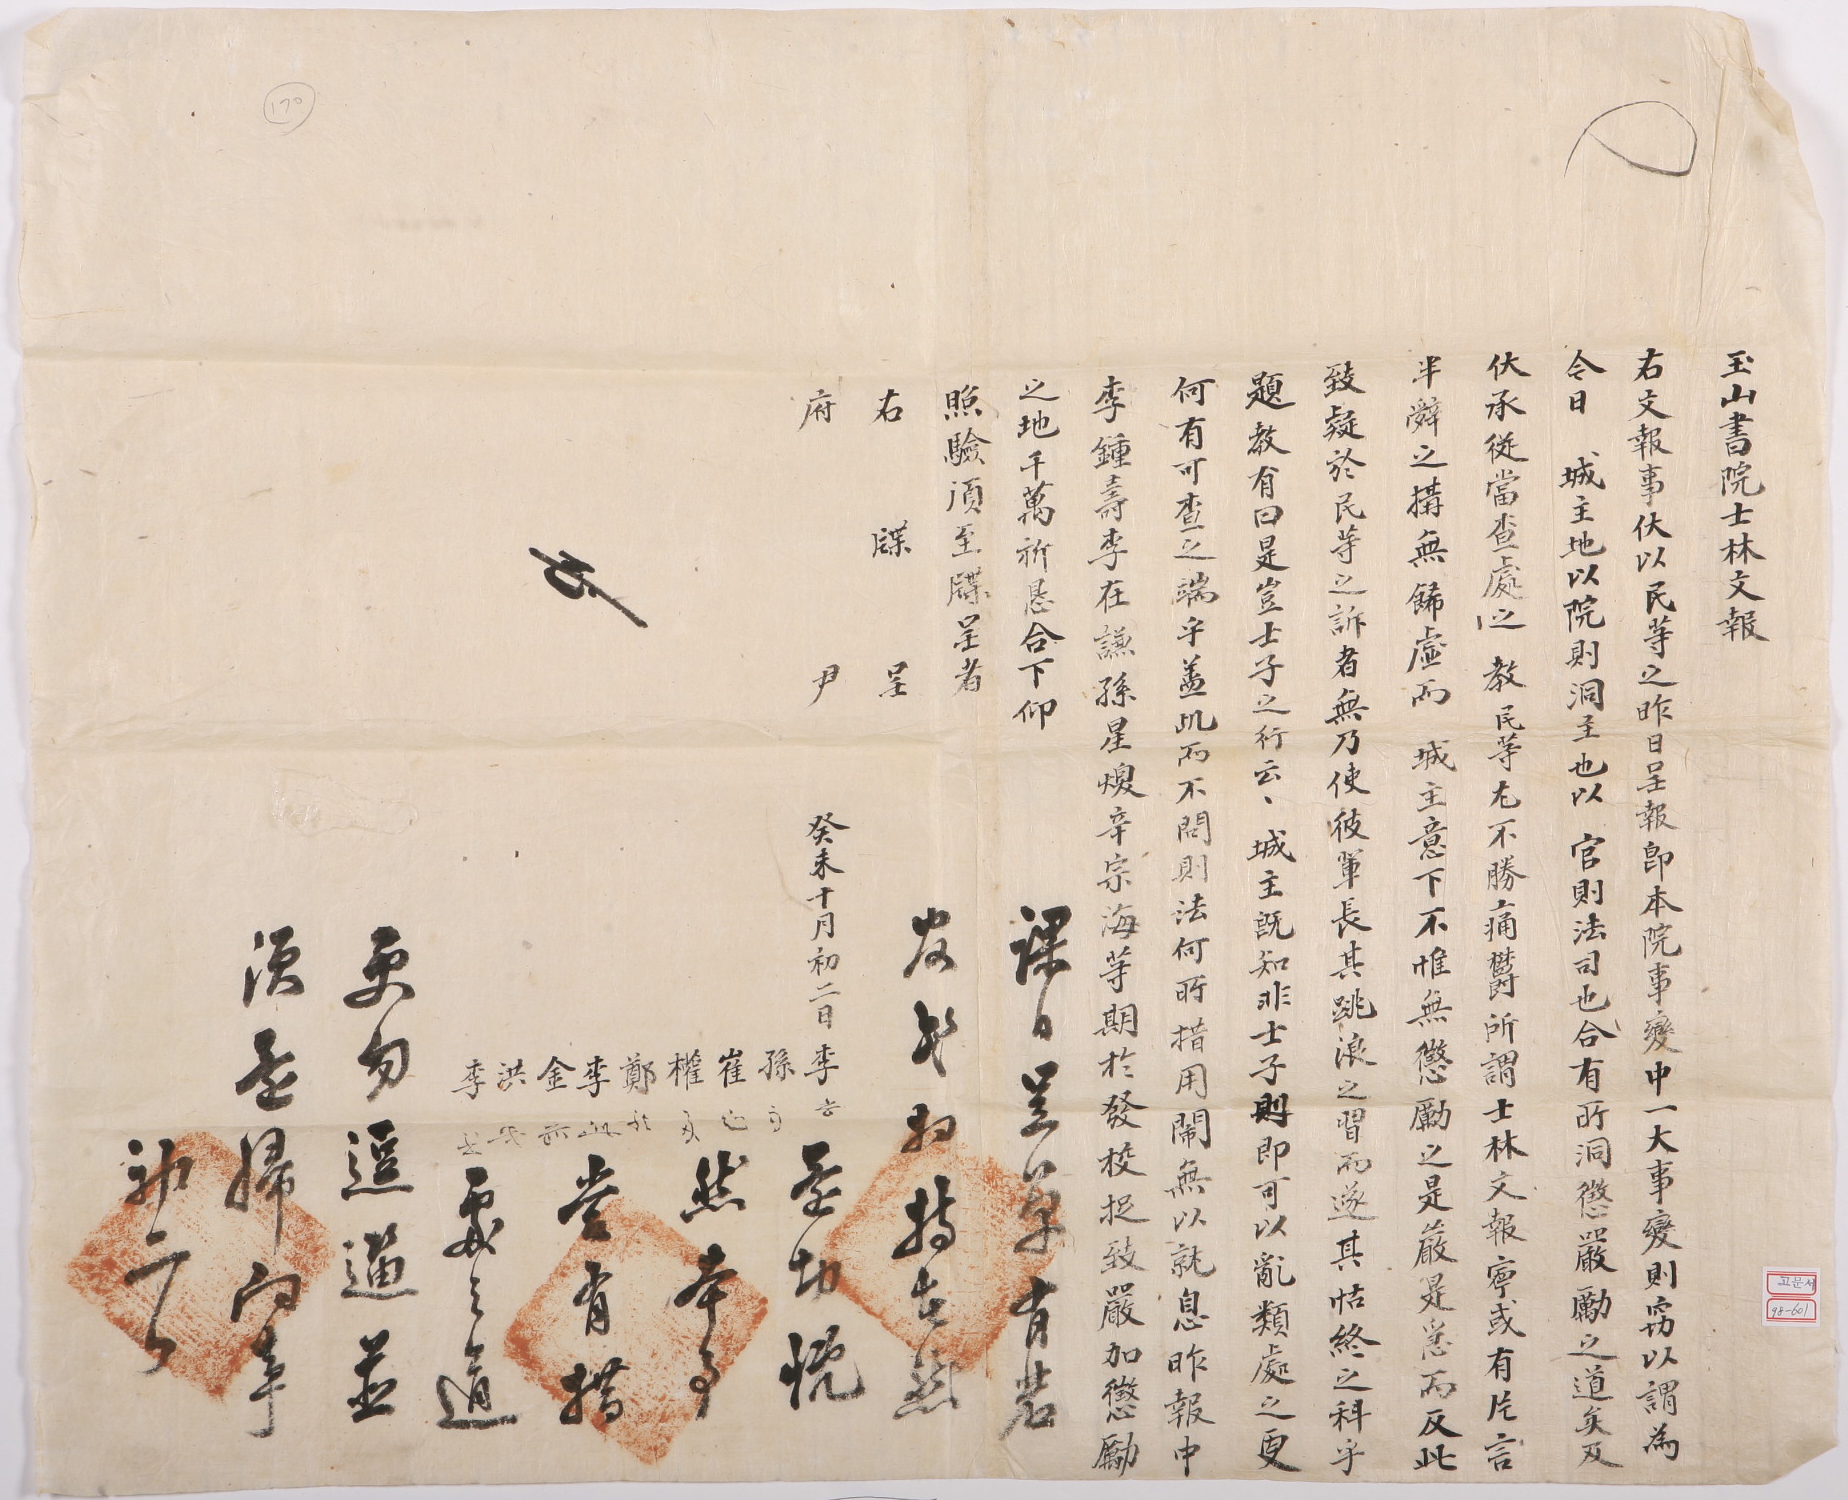 玉山書院士林文報
右文報事伏以民等之昨日呈報卽本院事變中一大事變則窃以謂爲
今日 城主地以院則洞主也以 官則法司也合有所洞懲嚴勵之道矣及
伏承從當查處之 敎民等尤不勝痛鬱所謂士林文報寧或有片言
半辭之搆無歸虛而 城主意下不惟無懲勵之是嚴是急而反此
致疑於民等之訴者無乃使彼輩長其跳浪之習而遂其怙終之科乎
題敎有曰是豈士子之行云、城主旣知非士子則即可以亂類處之更
何有可查之端乎盖此而不問則法何所措用鬧無以就息昨報中
李鍾壽李在謙孫星煥辛宗海等期於發校捉致嚴加懲勵
之地千萬祈恳合下仰
照驗湏至牒呈者
右 牒 呈
府 尹
癸未十月初二日 李
孫
崔
權
鄭
李
金
洪
李
課日呈單有若
切慌
然本事
當有措
處之道
更勿逗遛並
須歸向事
初二日
170
고문서
98-601